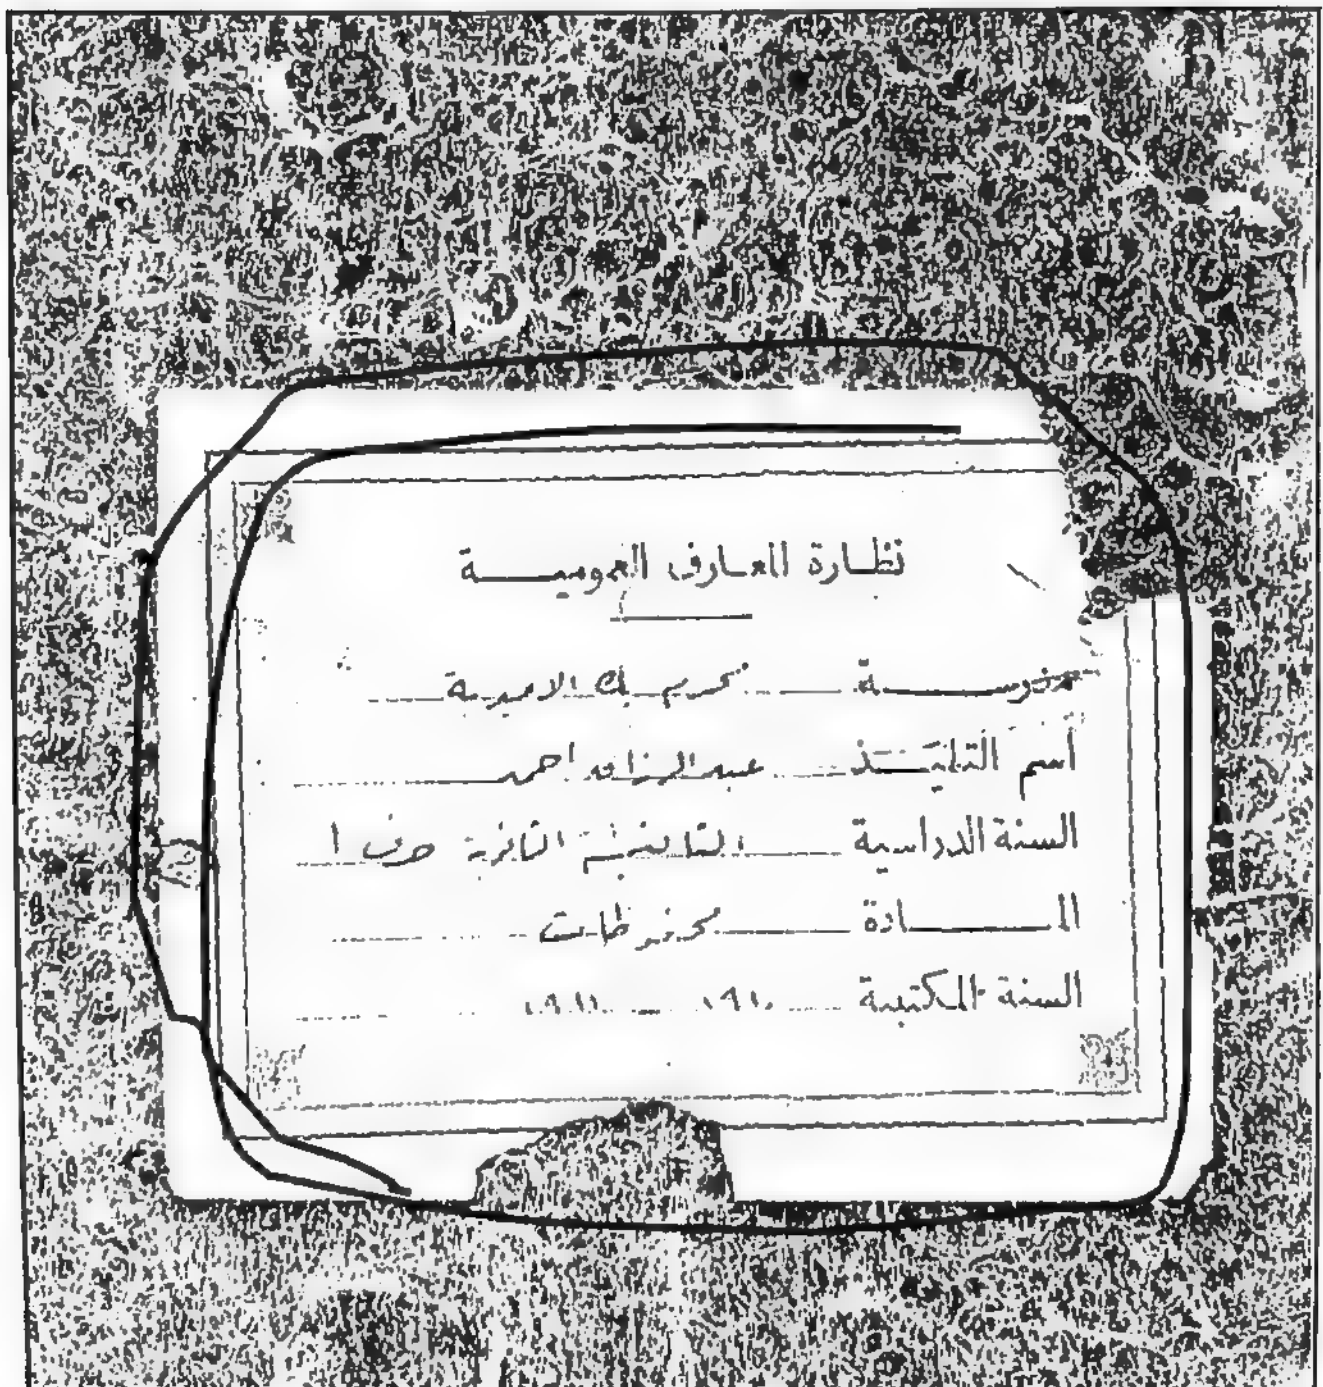 نظارة المعارف العمومية
مدرسة محرم بك الاميرية
اسم التلميذ عبد الرازق احمد
السنة الدراسية الثانوية حرف ا
المادة محفوظات
السنة المكتبية ١٩١٠ ١٩١١